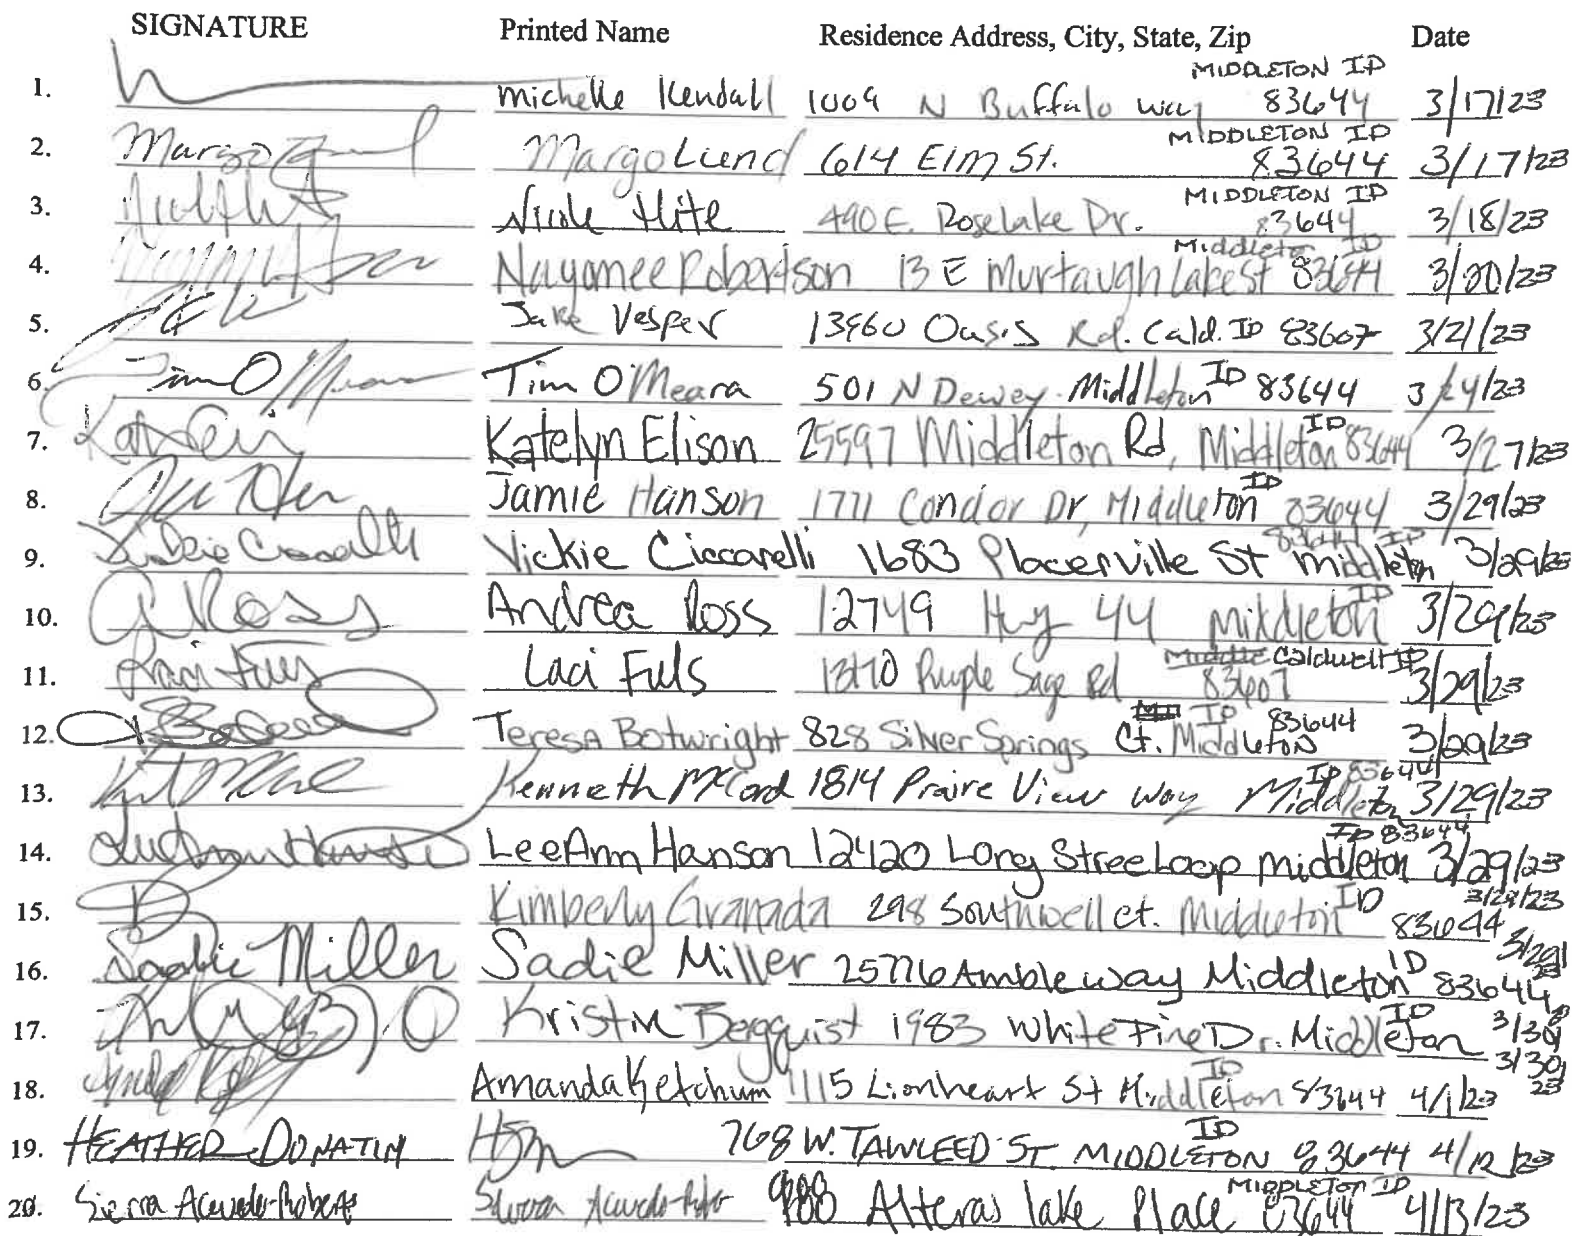 SIGNATURE Printed Name Residence Address, City, State, Zip Date
MIDDLETON ID
1. Michelle Kendall 1009 N Buffalo way 83644 3/17/23
MIDDLETON ID
2. Margo Lund Margo Lund 614 Elm St. 83644 3/17/23
MIDDLETON ID
3. Nicole Hite 490 E. Roselake Dr. 83644 3/18/23
Middleton ID
4. Nayomee Robertson 13 E Murtaugh Lake St 83644 3/20/23
5. Jake Vesper 13960 Oasis Rd. Cald. ID 83607 3/21/23
6. Tim O'Meara Tim O'Meara 501 N Dewey Middleton ID 83644 3/24/23
7. Katelyn Elison 25597 Middleton Rd, Middleton ID 83644 3/27/23
8. Jamie Hanson 1771 Condor Dr, Middleton ID 83644 3/29/23
83644 ID
9. Vickie Ciccarelli 1683 Placerville St Middleton 3/29/23
10. A Ross Andrea Ross 12749 Hwy 44 Middleton ID 3/29/23
Middle Caldwell ID
11. Laci Fuls Laci Fuls Purple Sage Rd 83607 3/29/23
12. Teresa Botwright 828 Silver Springs Ct. Middleton ID 83644 3/29/23
ID 83644
13. Kenneth McCord 1814 Praire View way Middleton 3/29/23
ID 83644
14. LeeAnn Hanson LeeAnn Hanson 12420 Long Stree Loop Middleton 3/29/23
15. Kimberly Granada 298 Southwell ct. Middleton ID 83644 3/29/23
16. Sadie Miller Sadie Miller 25776 Amble way Middleton ID 83644 3/29/23
17. Kristin Bergquist 1983 White Pine Dr. Middleton ID 3/30/
3/30/23
18. Amanda Ketchum 1115 Lionheart St Middleton ID 83644 4/1/23
19. HEATHER DONATIN 768 W. TAWLEED ST. MIDDLETON ID 83644 4/12/23
MIDDLETON ID
20. Sierra Acevedo-Roberts Alteras lake Place 83644 4/13/23